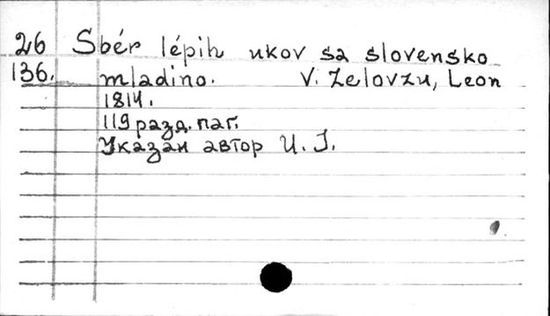 26 Sbér lépih ukov sa slovensko
136. mladino. V. Zelovzu, Leon
1814.
119 разд. паг.
Указан автор И. J.